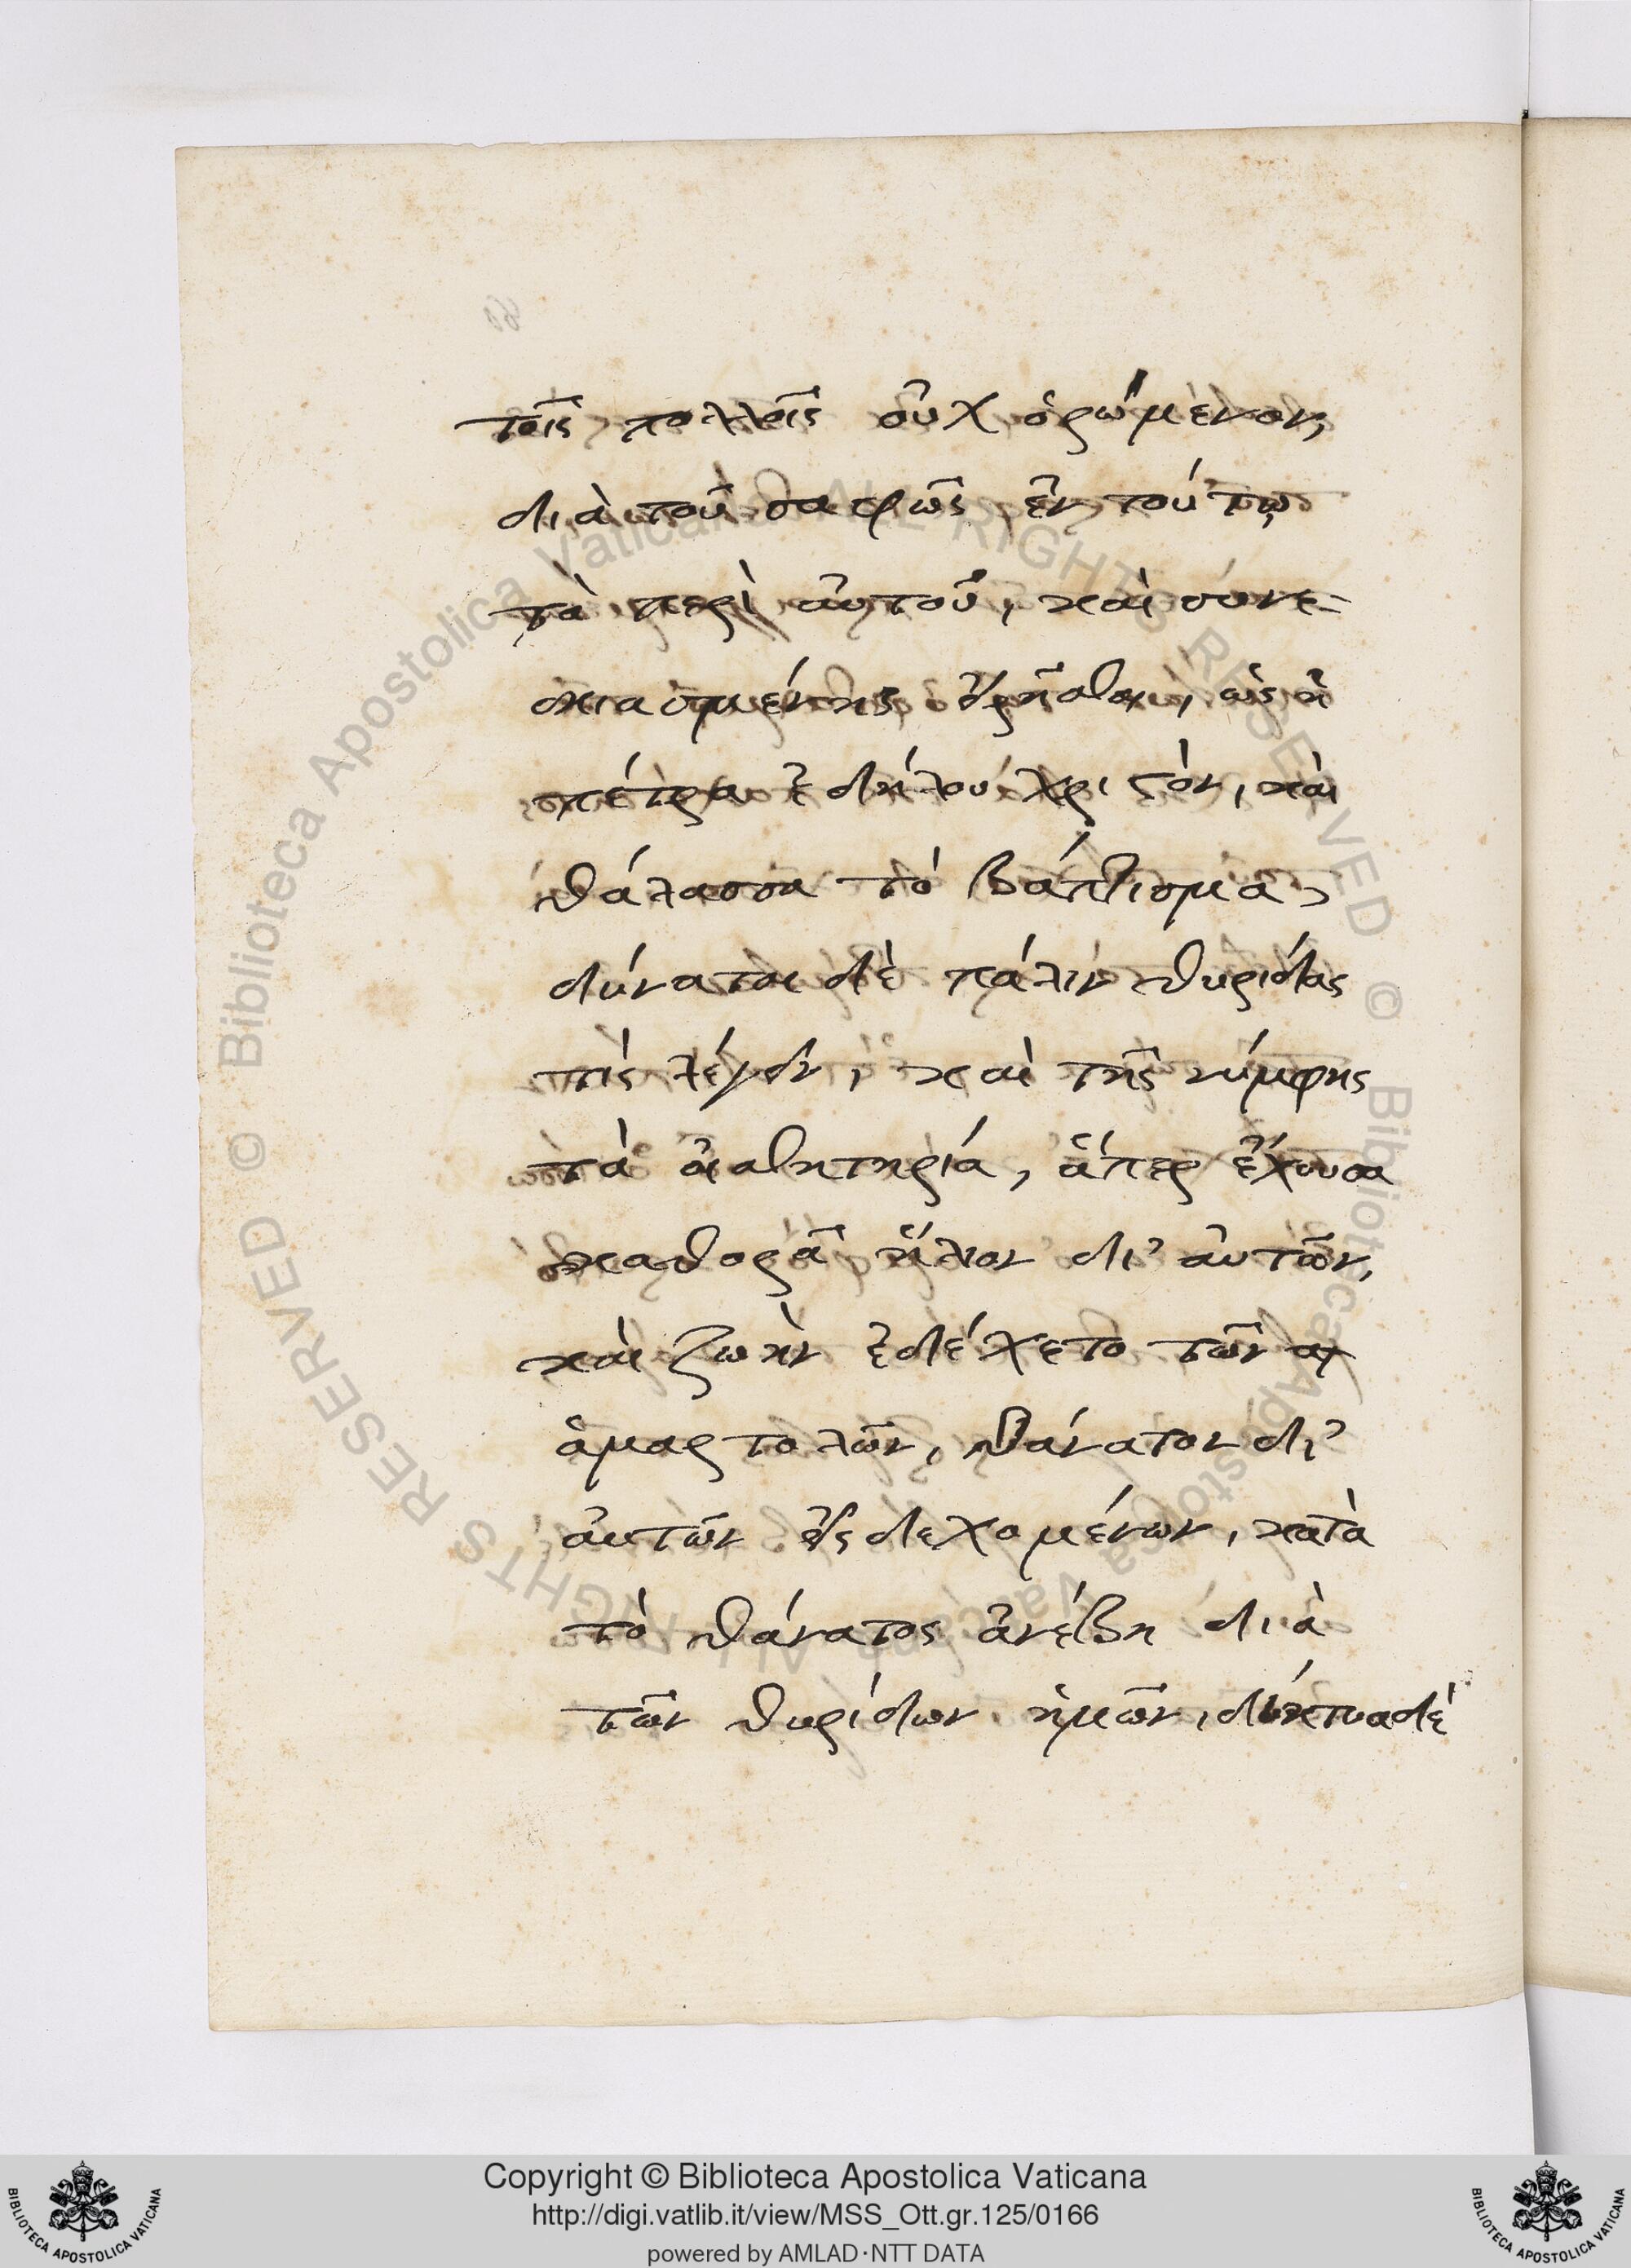 τοῖς πολλοῖς οὐχ ὁρώμενον,
διὰ τοῦ σαφῶς ἐν τούτῳ
τὰ περὶ αὐτοῦ, καὶ συνε-
σκιασμένης εἰρῆσθαι, ὡς ἡ
πέτρα ἐδήλου χριστὸν, καὶ
θάλασσα τὸ βάπτισμα,
δύναται δὲ πάλιν θυρίδας
τίς λέγειν, καὶ τῆς νύμφης
τὰ αἰσθητηρία, ἅπερ ἔχουσα
καθορᾶ ἥλιον δι' αὐτῶν,
καὶ ζωὴν ἐδέχετο τῶν
ἁμαρτολῶν, θάνατον δι'
αὐτῶν εἰςδεχομένων, κατὰ
τὸ θάνατος ἀνέβη διὰ
τῶν θυρίδων ἡμῶν, δύκτυα δὲ
BIBLIOTECA APOSTOLICA VATICANA
Copyright © Biblioteca Apostolica Vaticana
http://digi.vatlib.it/view/MSS_Ott.gr.125/0166
powered by AMLAD·NTT DATA
BIBLIOTECA APOSTOLICA VATICANA
© Biblioteca Apostolica Vaticana ALL RIGHTS RESERVED © Biblioteca Apostolica Vaticana ALL RIGHTS RESERVED